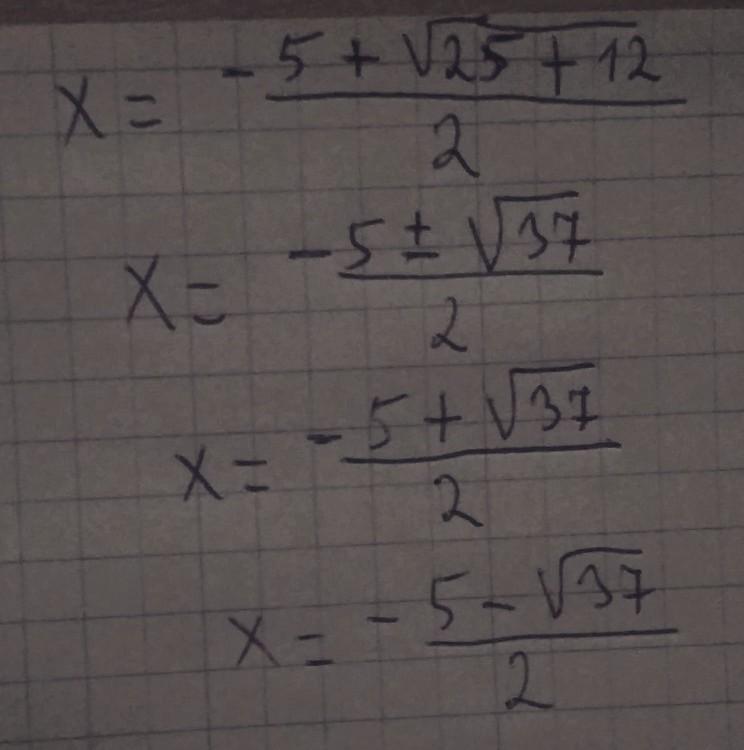 x = -5 + √25 + 12 / 2
x = -5 ± √37 / 2
x = -5 + √37 / 2
x = -5 - √37 / 2